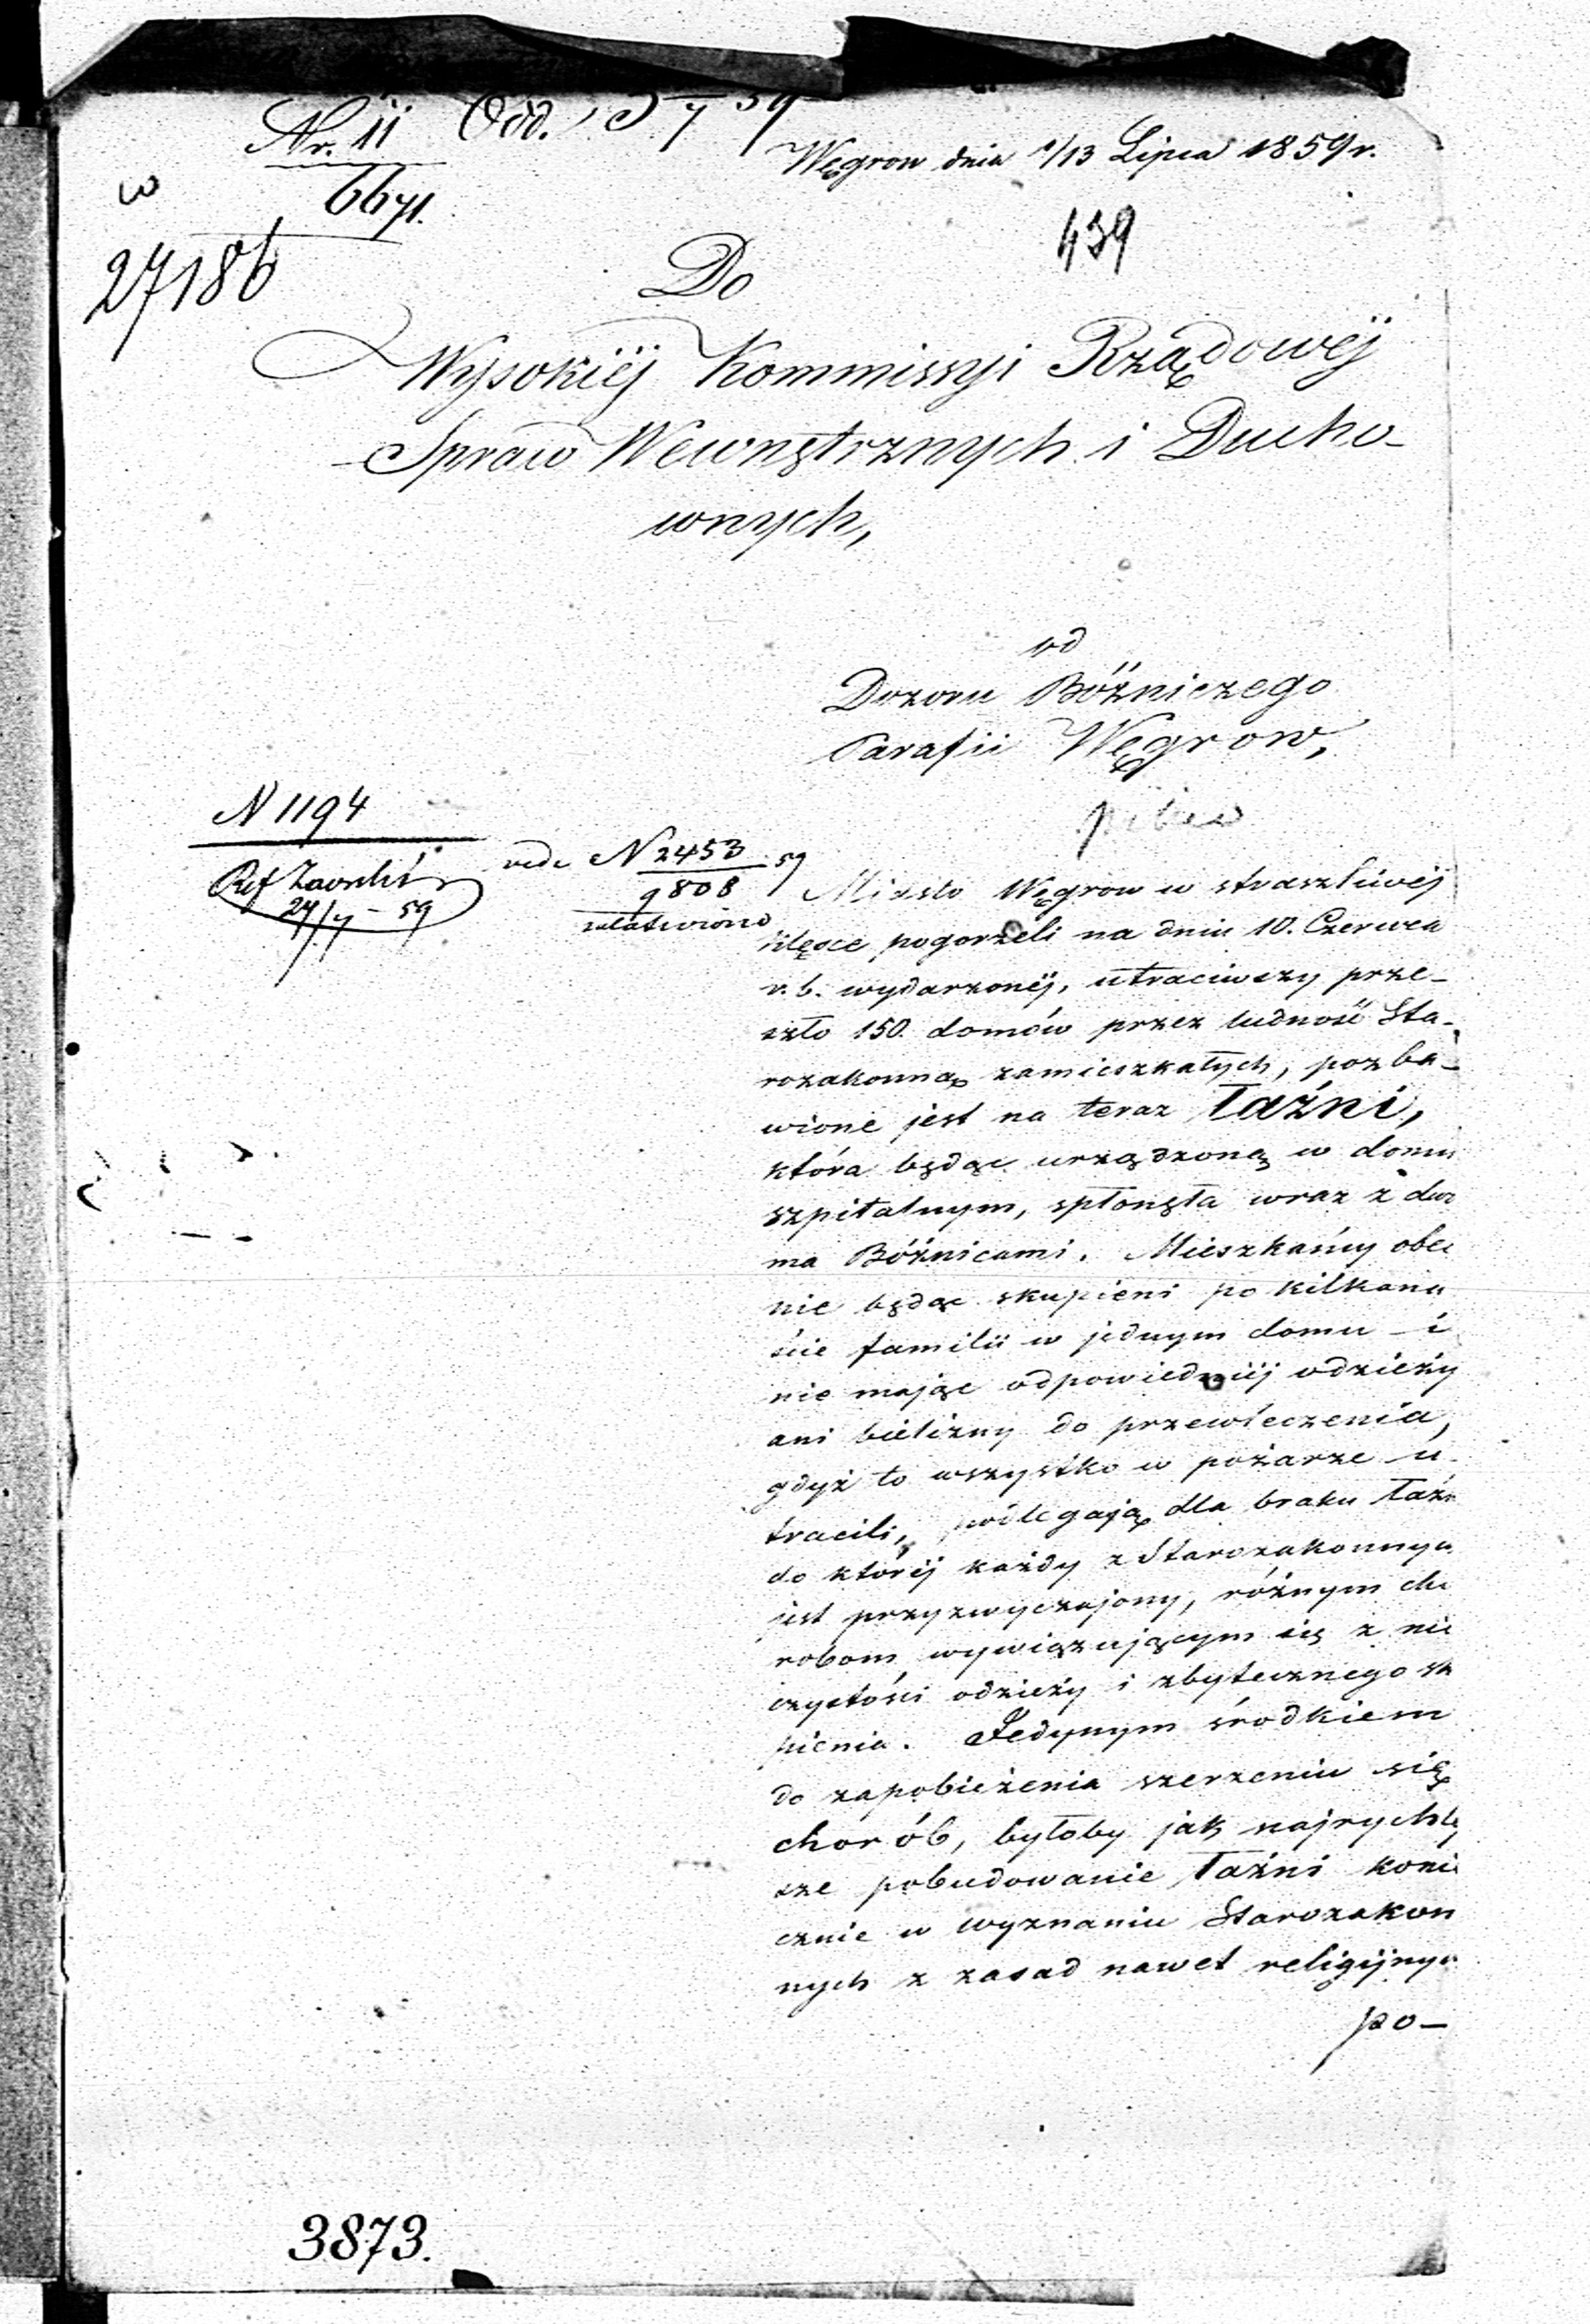 Nr. 11 Odd.
6671.
w
27186
Węgrow dnia 1/13 Lipca 1859 r.
439
Do
Wysokiéj Kommissyi Rządowéj
Spraw Wewnętrznych i Ducho-
wnych,
od
Dozoru Bóżniczego
Parafii Węgrow,
N 1194
Ref
24/7 - 59
vide N 2453
9808 59
załatwiono
Miasto Węgrow w straszliwéj
klęsce pogorzeli na dniu 10. Czerwca
r. b. wydarzonéj, utraciwszy prze-
szło 150. domów przez ludność Sta-
rozakonną zamieszkałych, pozba-
wione jest na teraz Łaźni,
która będąc urządzoną w domu
szpitalnym, spłonęła wraz z dwo
ma Bóżnicami. Mieszkańcy obec
nie będąc skupieni po kilkana
ście familii w jednym domu i
nie mając odpowiedniéj odzieży
ani bielizny do przewleczenia,
gdyż to wszystko w pożarze u-
tracili, podlegają dla braku Łaźn
do któréj każdy z Starozakonnych
jest przyzwyczajony, różnym cho
robom wywiązującym się z nie
czystości odzieży i zbytecznego sk
pienia. Jedynym środkiem
do zapobieżenia szerzeniu się
chorób, byłoby jak najrychle
sze pobudowanie Łaźni konie
cznie w wyznaniu Starozakon
nych z zasad nawet religijnych
po-
3873.